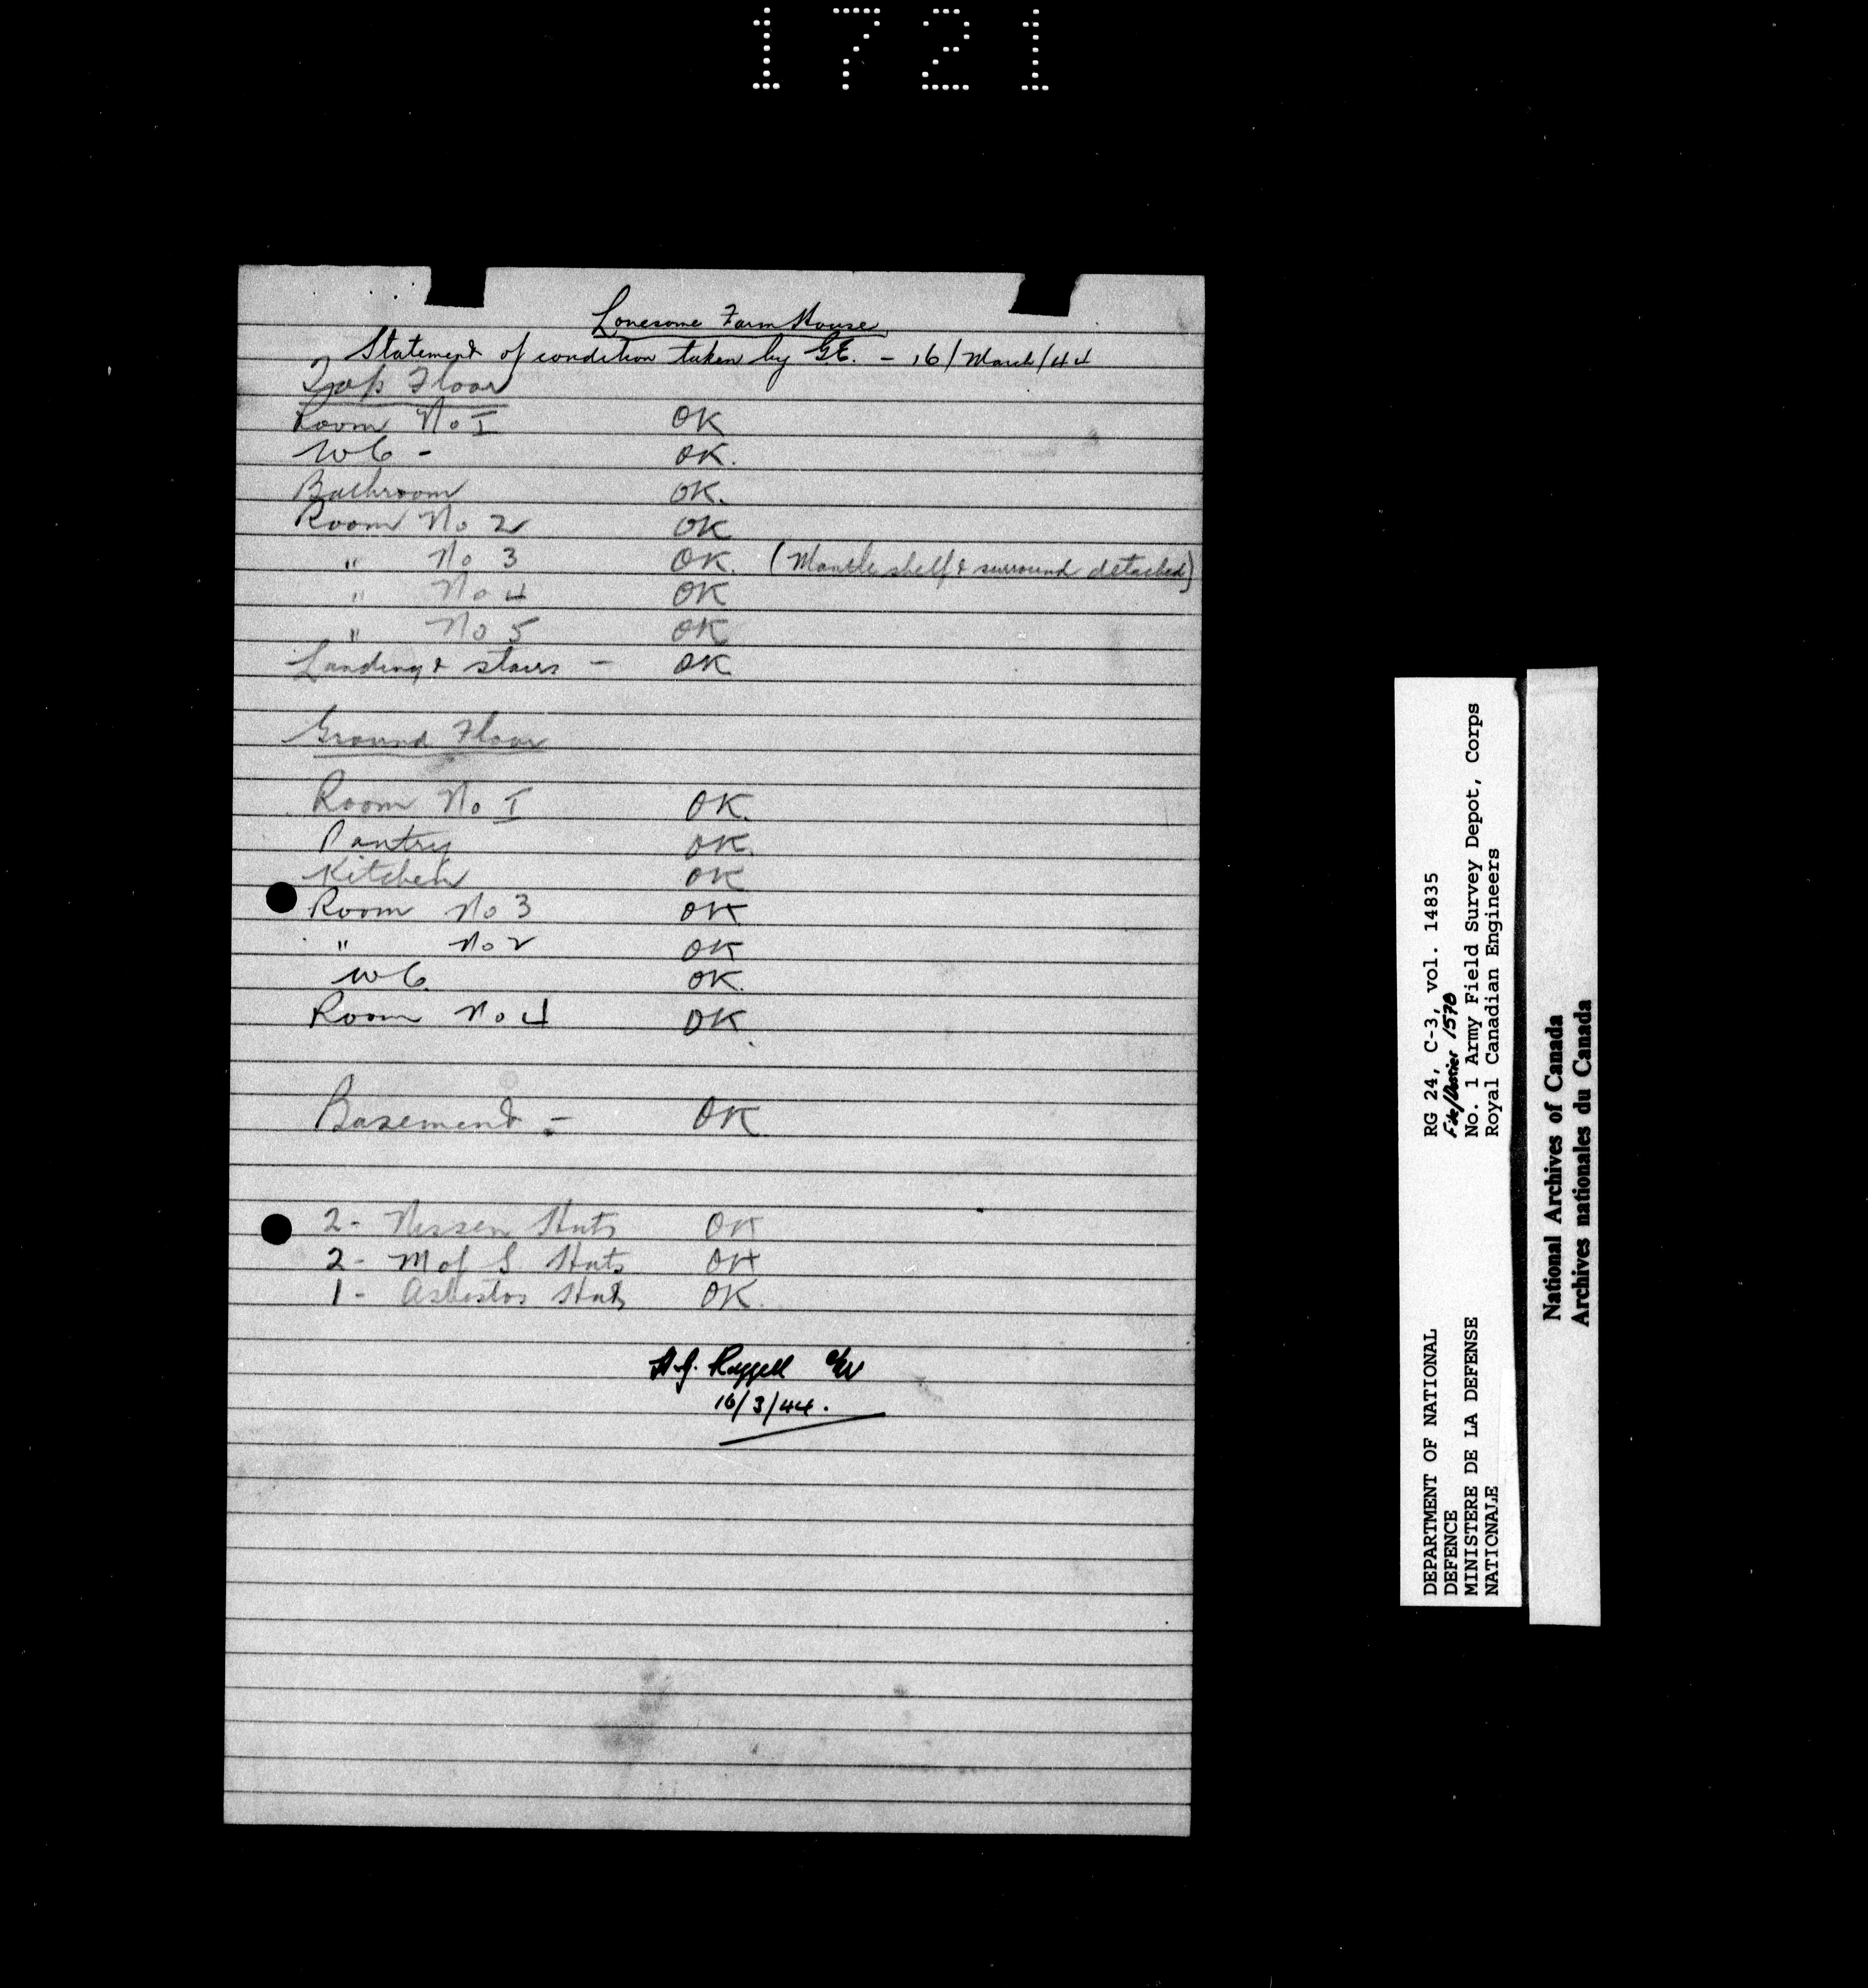 1721
Lonesome Farm House
Statement of condition taken by G.E. - 16/March/44
Top Floor
Room No I OK
WC - OK.
Bathroom OK.
Room No 2 OK
" No 3 OK. (Mantle shelf & surround detached)
" No 4 OK
" No 5 OK
Landing & stairs - OK
Ground Floor
Room No I OK.
Pantry OK.
Kitchen OK
Room No 3 OK
" No 2 OK
WC. OK.
Room No 4 OK
Basement - OK
2- Nissen Huts OK
2- M of S. Huts OK
1- Asbestos Hut OK.
16/3/44.
DEPARTMENT OF NATIONAL
DEFENCE
MINISTERE DE LA DEFENSE
NATIONALE
RG 24, C-3, vol. 14835
File/Dossier 1570
No. 1 Army Field Survey Depot, Corps
Royal Canadian Engineers
National Archives of Canada
Archives nationales du Canada